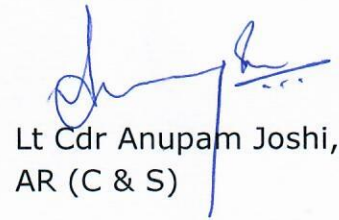 Lt Cdr Anupam Joshi,
AR (C & S)